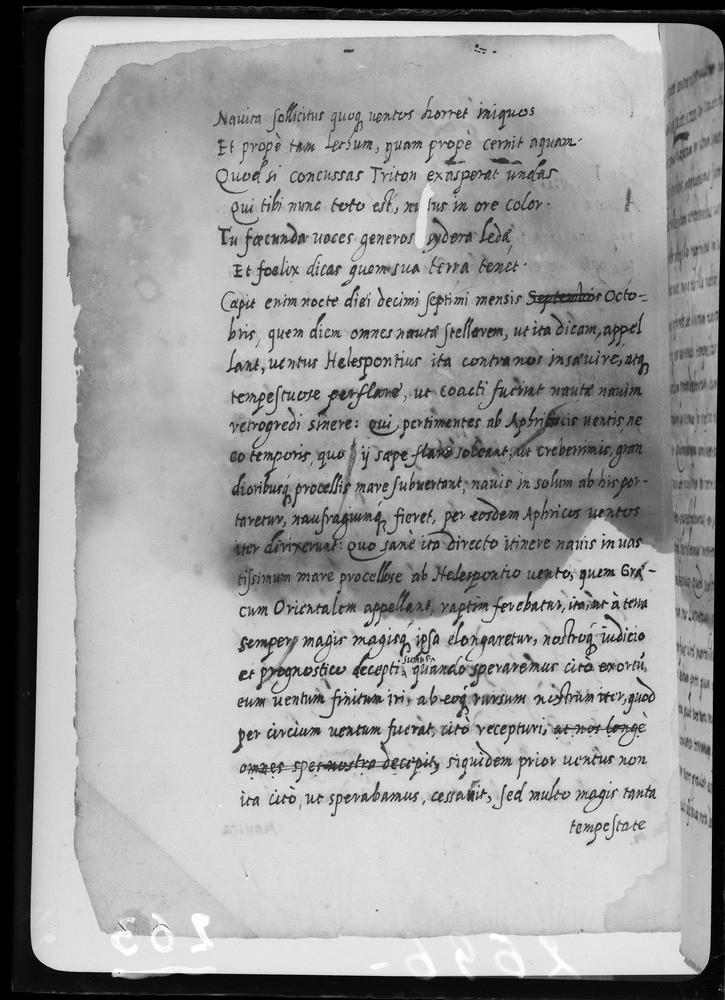 Navita sollicitus quoq; ventos horret iniquos
Et propè tam lethum, quam propè cernit aquam.
Quod si concussas Triton exasperat undas
Qui tibi nunc toto est, nullus in ore color.
Tu fœcunda voces generosi sydera ledæ,
Et foelix dicas quem sua terra tenet.
Cœpit enim nocte diei decimi septimi mensis Septembris Octo-
bris, quem diem omnes nautæ stellarem, ut ita dicam, appel
lant, ventus Helespontius ita contra nos insævire, atq;
tempestuose perflare, ut coacti fuerint nautæ navim
retrogredi sinere: qui pertimentes ab Aphricis ventis, ne
eo temporis, quo ij sæpe flare soleant, ut creberrimis, gran
dioribusq; procellis mare subvertant, navis in solum ab his por-
taretur, naufragiumq; fieret, per eosdem Aphricos ventos
iter dirixerunt: Quo sanè ita directo itinere navis in vas
tissimum mare procellose ab Helespontio vento, quem Græ-
cum Orientalem appellant, raptim ferebatur, ita, ut à terra
semper magis magisq; ipsa elongaretur, nostroq; iudicio
et prognostico decepti sumus, quando speraremus citò exortū
eum ventum finitum iri, ab eoq; rursum nostrum iter, quod
per circium ventum fuerat, citò recepturi, at nos longè
omnes spes nostra decepit, siquidem prior ventus non
ita citò, ut sperabamus, cessavit, sed multo magis tanta
tempestate
263
2696-